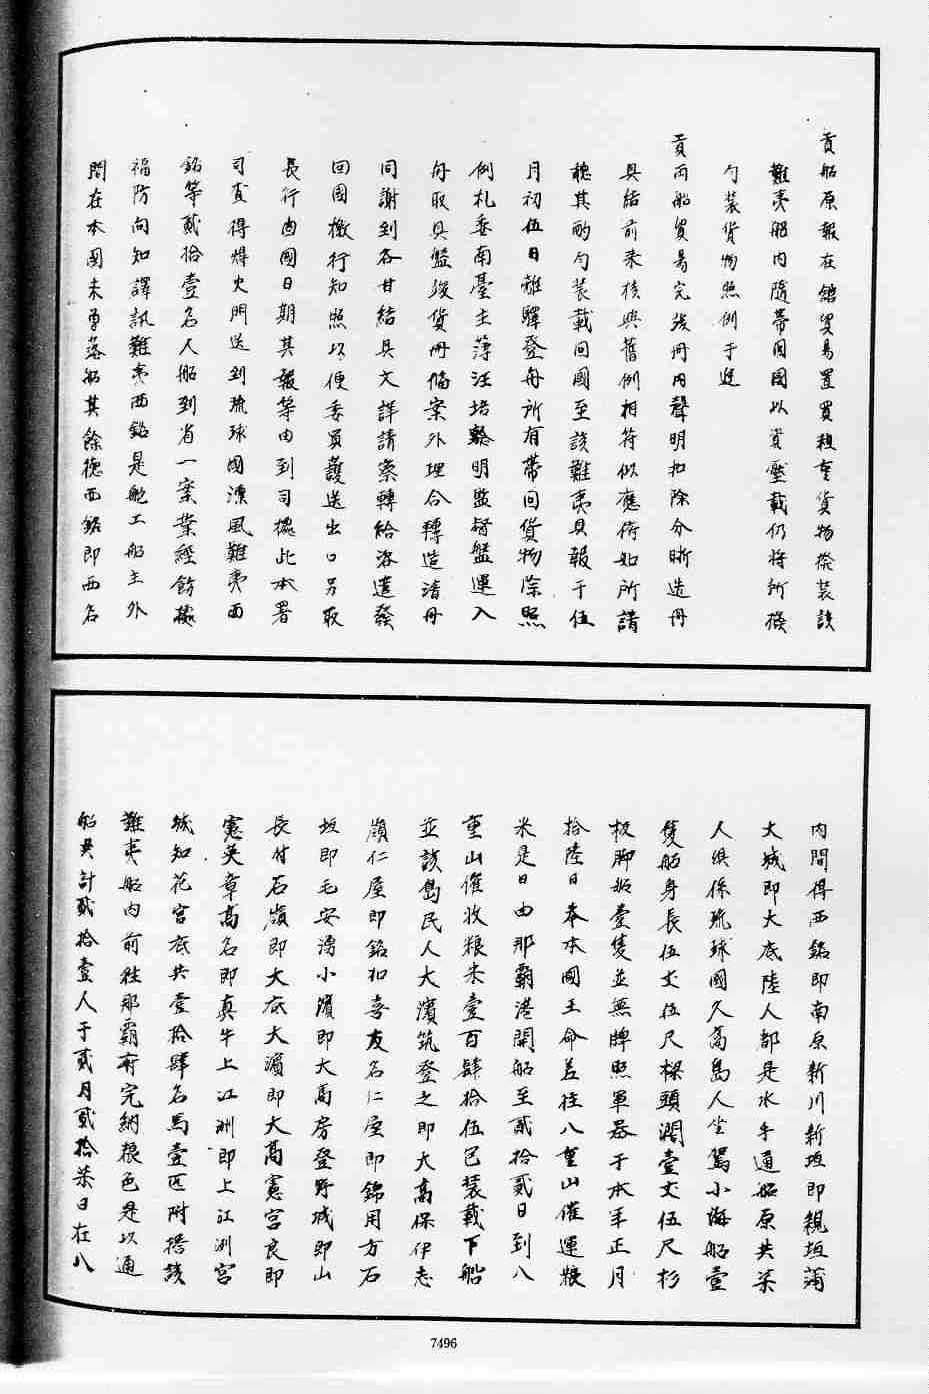 貢船原報在館貿易置買粗重貨物撥裝該
難夷船內隨帶回國以資壓載仍將所撥
勻裝貨物照例于進
貢兩船貿易完竣冊內聲明扣除分晰造冊
具結前來核與舊例相符似應俯如所請
聽其酌勻裝載回國至該難夷具報于伍
月初伍日離驛登舟所有帶回貨物除照
例札委南臺主簿汪培 明監督盤運入
舟取具盤驗貨冊備案外理合轉造清冊
同謝到各甘結具文詳請察轉給咨遣發
回國檄行知照以便委員護送出口另取
長行回國日期其報等由到司據此本署
司查得烽火門送到琉球國漂風難夷西
銘等貳拾壹名人船到省一案業經飭據
福防同知譯訊難夷西銘是舵工船主外
間在本國未曾落船其餘德西銘即西名
內間得西銘即南原新川新垣即親垣蒲
大城即大底陸人都是水手通船原共柒
人俱係琉球國久高島人坐駕小海船壹
隻船身長伍丈伍尺樑頭濶壹丈伍尺杉
板腳船壹隻並無牌照軍器于本年正月
拾陸日奉本國王命差往八重山催運粮
米是日由那霸港開船至貳拾貳日到八
重山催收粮米壹百肆拾伍包裝載下船
並該島民人大濱筑登之即大高保伊志
嶺仁屋即銘扣喜友名仁屋即錦用方石
垣即毛安湧小濱即大高房登野城即山
長付石嶺即大底大濱即大高憲宮良即
憲英章高名即真牛上江洲即上江洲宮
城知花宮底共壹拾肆名馬壹匹附搭該
難夷船內前往那霸府完納粮色是以通
船共計貳拾壹人于貳月貳拾柒日在八
7496